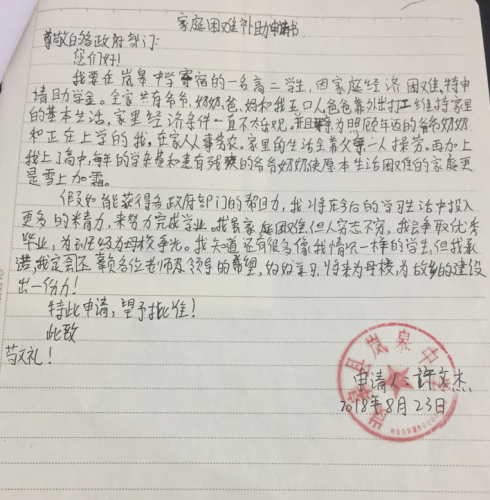 家庭困难补助申请书
尊敬的各政府部门:
您们好!
我要在岚皋中学寄宿的一名高二学生,因家庭经济困难,特申
请助学金。全家共有爷爷、奶奶、爸、妈和我五口人,爸爸靠外出打工维持家里
的基本生活,家里经济条件一直不太乐观。并且母亲为照顾年迈的爷爷奶奶
和正在上学的我,在家人人事务农。家里的生活全靠父亲一人操劳。再加上
我上了高中,每年的学杂费和患有残疾的爷爷奶奶使原本生活困难的家庭更
是雪上加霜。
假如能获得各政府部门的帮助,我将在今后的学习生活中投入
更多的精力,来努力完成学业。我虽家庭困难但人穷志不穷,我会争取优秀
毕业,为班级为母校争光。我知道还有很多像我情况一样的学生,但我承
诺,我定会不辜负各位老师及领导的希望,好好学习,将来为母校,为故乡的建设
出一份力!
特此申请,望予批准!
此致
敬礼!
申请人:许文杰
2018年8月23日
岚皋县岚皋中学